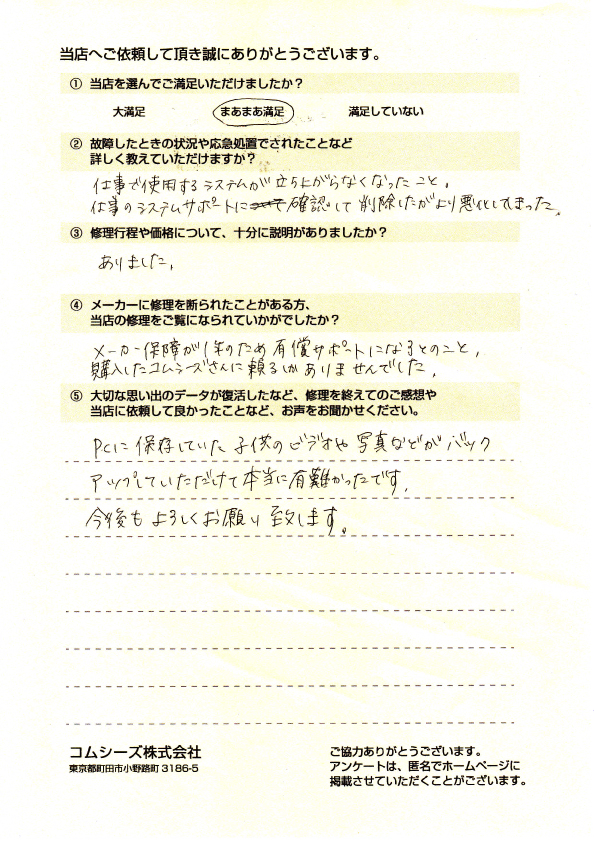 当店へご依頼して頂き誠にありがとうございます。
① 当店を選んでご満足いただけましたか？
大満足 まあまあ満足 満足していない
② 故障したときの状況や応急処置でされたことなど
詳しく教えていただけますか？
仕事で使用するシステムが立ち上がらなくなったこと。
仕事のシステムサポートに確認して削除したがより悪化してしまった。
③ 修理行程や価格について、十分に説明がありましたか？
ありました。
④ メーカーに修理を断られたことがある方、
当店の修理をご覧になられていかがでしたか？
メーカー保障が1年のため有償サポートになるとのこと。
購入したコムシーズさんに頼るしかありませんでした。
⑤ 大切な思い出のデータが復活したなど、修理を終えてのご感想や
当店に依頼して良かったことなど、お声をお聞かせください。
PCに保存していた子供のビデオや写真などがバック
アップしていただけて本当に有難かったです。
今後もよろしくお願い致します。
コムシーズ株式会社
東京都町田市小野路町 3186-5
ご協力ありがとうございます。
アンケートは、匿名でホームページに
掲載させていただくことがございます。